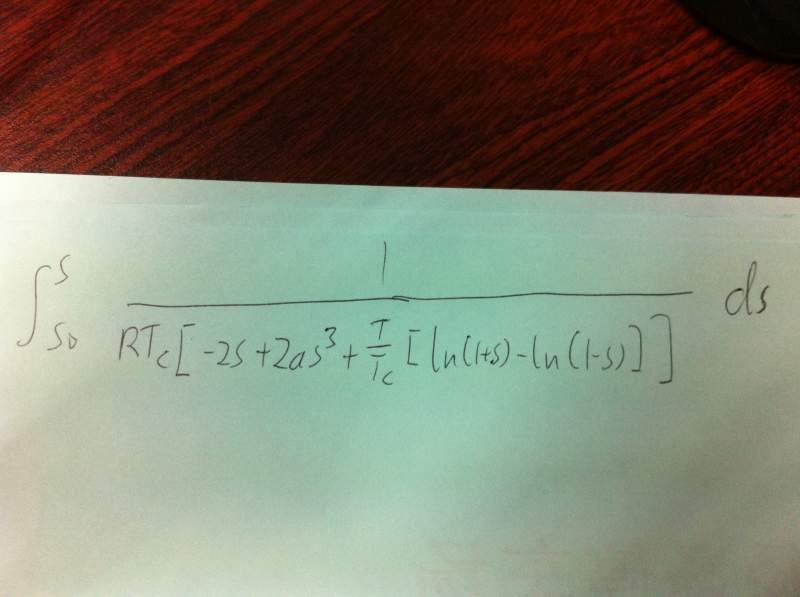 ∫_{s_0}^{s} \frac{1}{RT_c[-2s+2as^3+\frac{T}{T_c}[ln(1+s)-ln(1-s)]]} ds